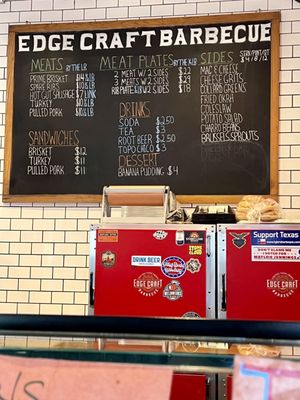 EDGE CRAFT BARBECUE
MEATS BY THE LB
PRIME BRISKET
SPARE RIBS
HOT GUT SAUSAGE $7 LINK
TURKEY
PULLED PORK
SANDWICHES
BRISKET $12
TURKEY $11
PULLED PORK $11
MEAT PLATES
2 MEAT W/ 2 SIDES $22
3 MEATS W/ 2 SIDES $29
$18
DRINKS
SODA $2.50
TEA $3
ROOT BEER $2.50
TOPO CHICO $3
DESSERT
BANANA PUDDING $4
SIDES
$4/8/12
MAC & CHEESE
CHEESE GRITS
COLLARD GREENS
FRIED OKRA
COLESLAW
POTATO SALAD
CHARRO BEANS
BRUSSELS SPROUTS
Support Texas
DRINK BEER
EDGE CRAFT
BARBECUE
EDGE CRAFT
BARBECUE